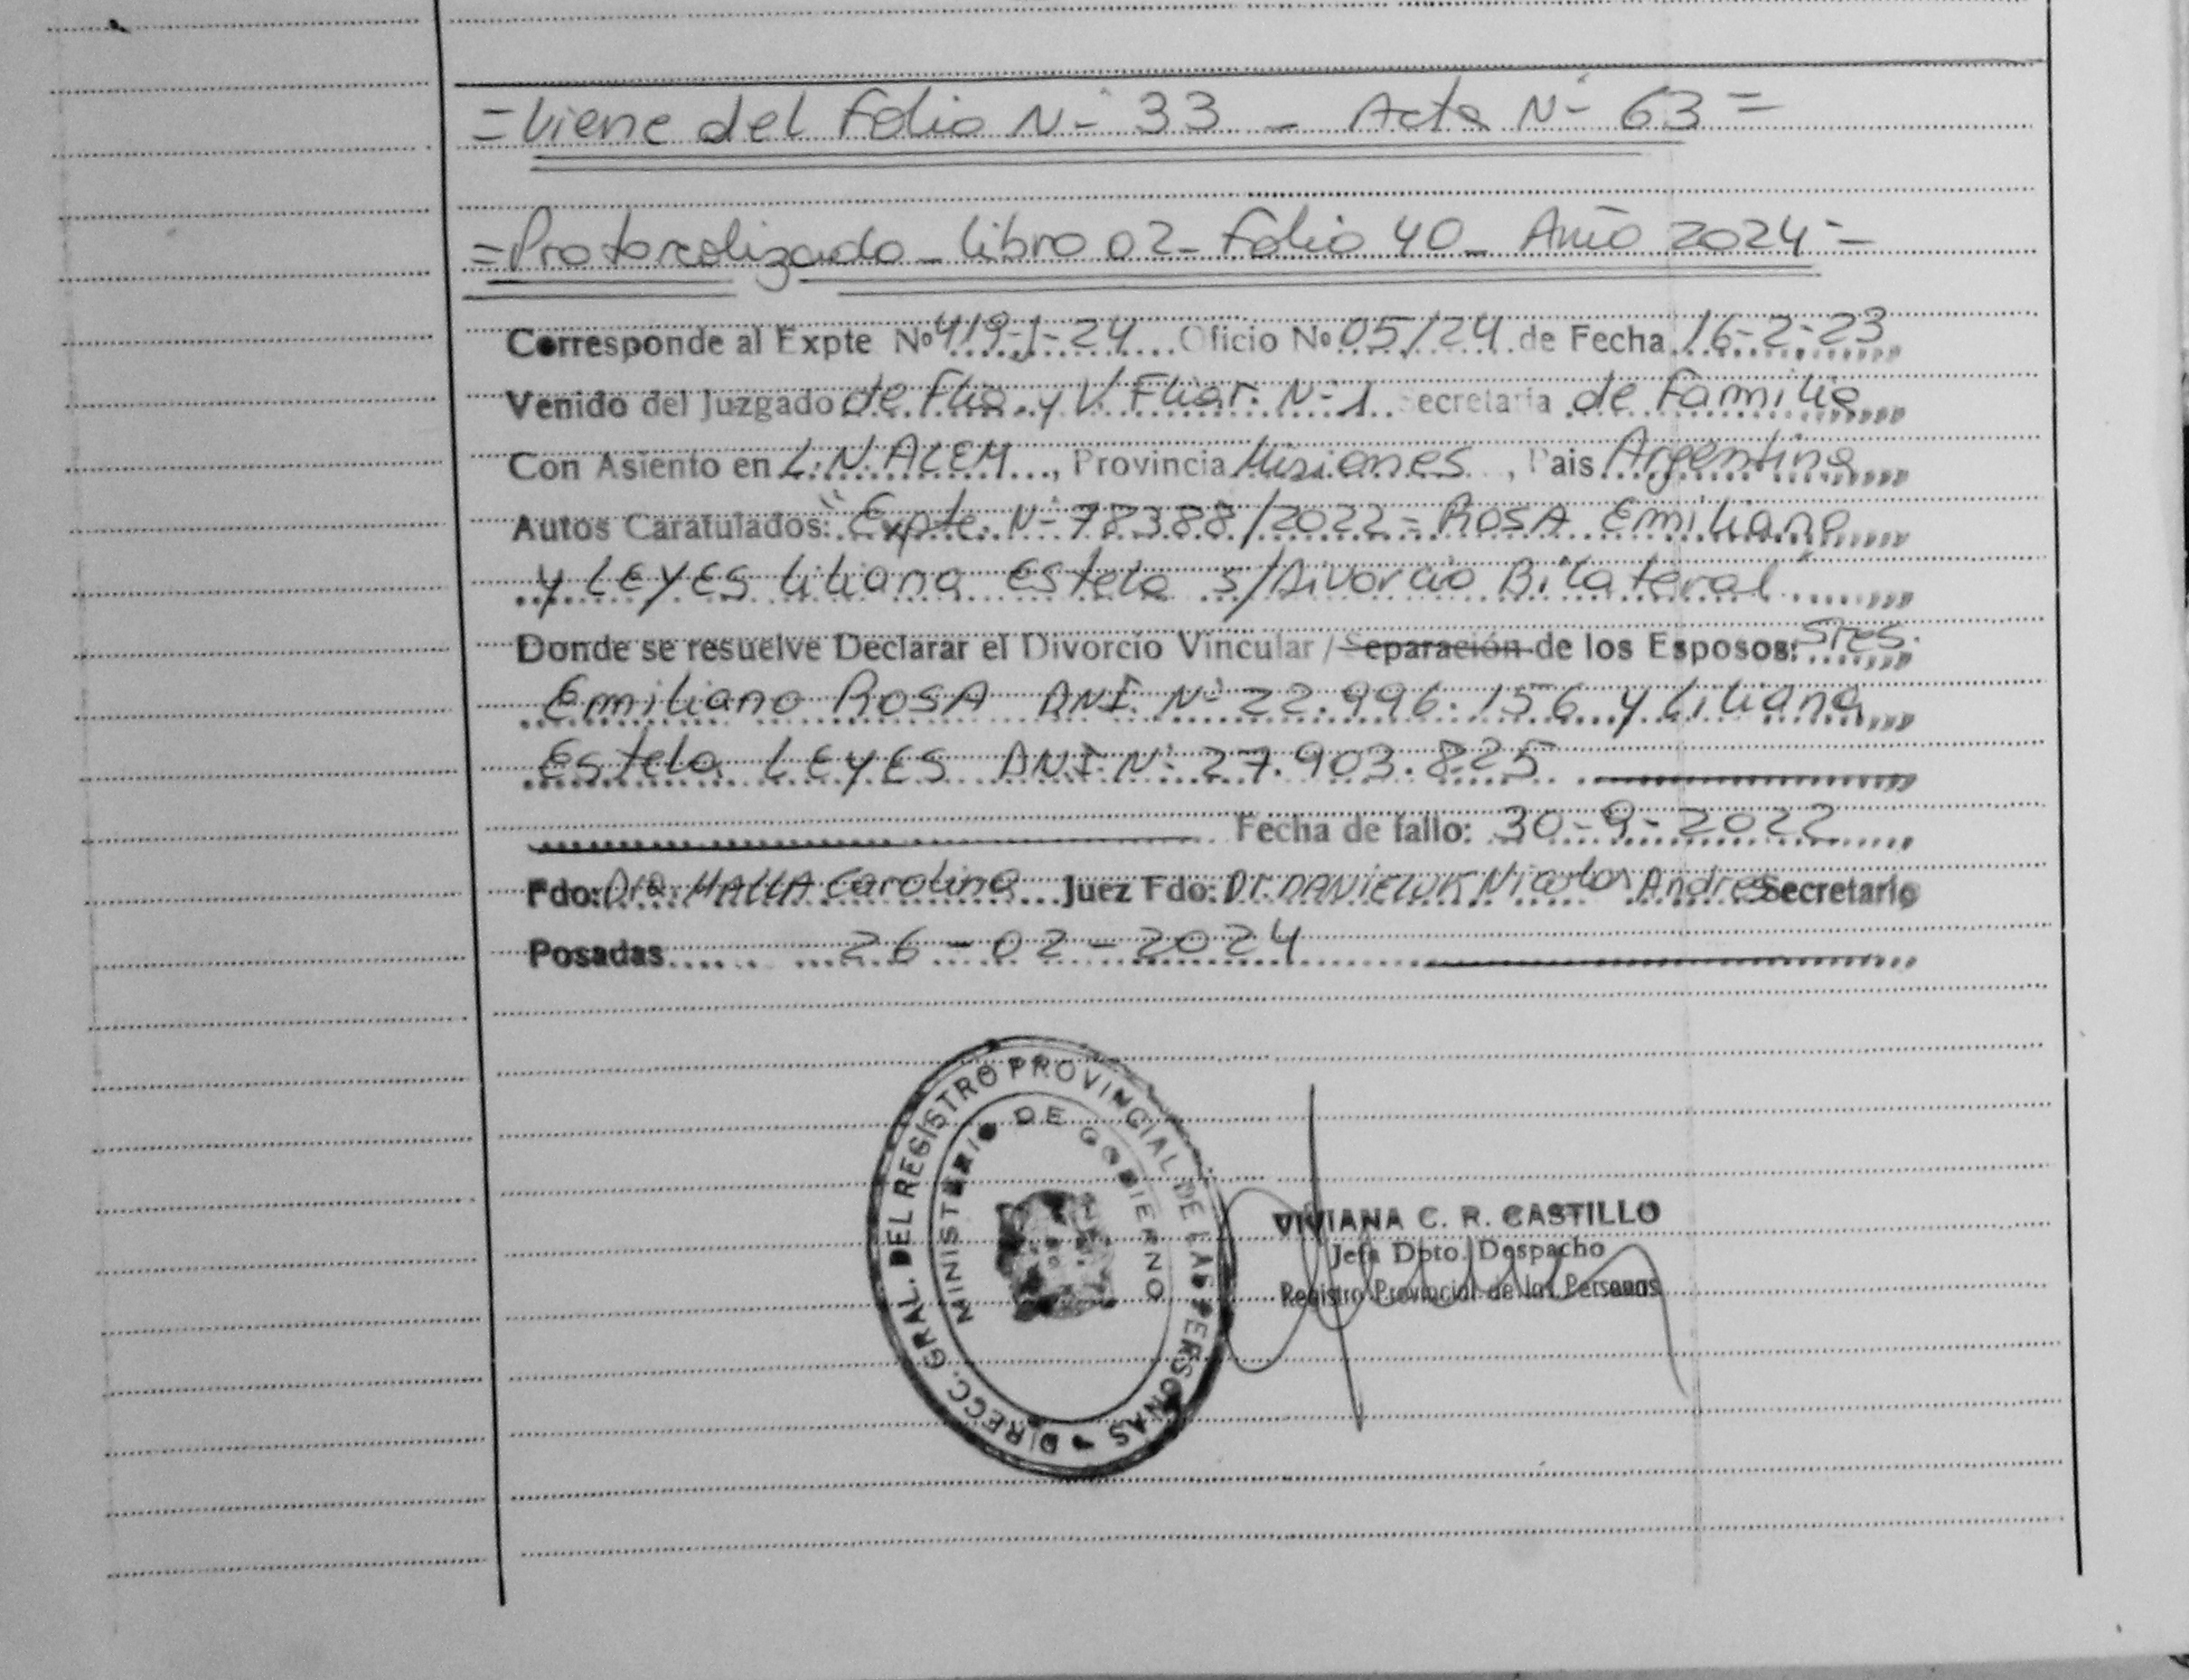 =Viene del Folio N- 33 - Acta N- 63=
=Protocolizado - Libro 02 - Folio 40 - Año 2024=
Corresponde al Expte Nº 419-J-24 Oficio Nº 05/24 de Fecha 16-2-23
Venido del Juzgado de Flia. y V. Fliar. N-1 Secretaria de Familia
Con Asiento en L.N. ALEM, Provincia Misiones, Pais Argentina
Autos Caratulados: "Expte. N- 78388/2022 = ROSA Emiliano
y LEYES Liliana Estela s/Divorcio Bilateral"
Donde se resuelve Declarar el Divorcio Vincular / Separación de los Esposos: Sres.
Emiliano ROSA DNI. N- 22.996.156 y Liliana
Estela LEYES DNI. N- 27.903.825
Fecha de fallo: 30-9-2022
Fdo: Dra. MALLA Carolina Juez Fdo: Dr. DANIELUK Nicolas Andres Secretario
Posadas 26-02-2024
DIRECC. GRAL. DEL REGISTRO PROVINCIAL DE LAS PERSONAS
MINISTERIO DE GOBIERNO
VIVIANA C. R. CASTILLO
Jefa Dpto. Despacho
Registro Provincial de las Personas